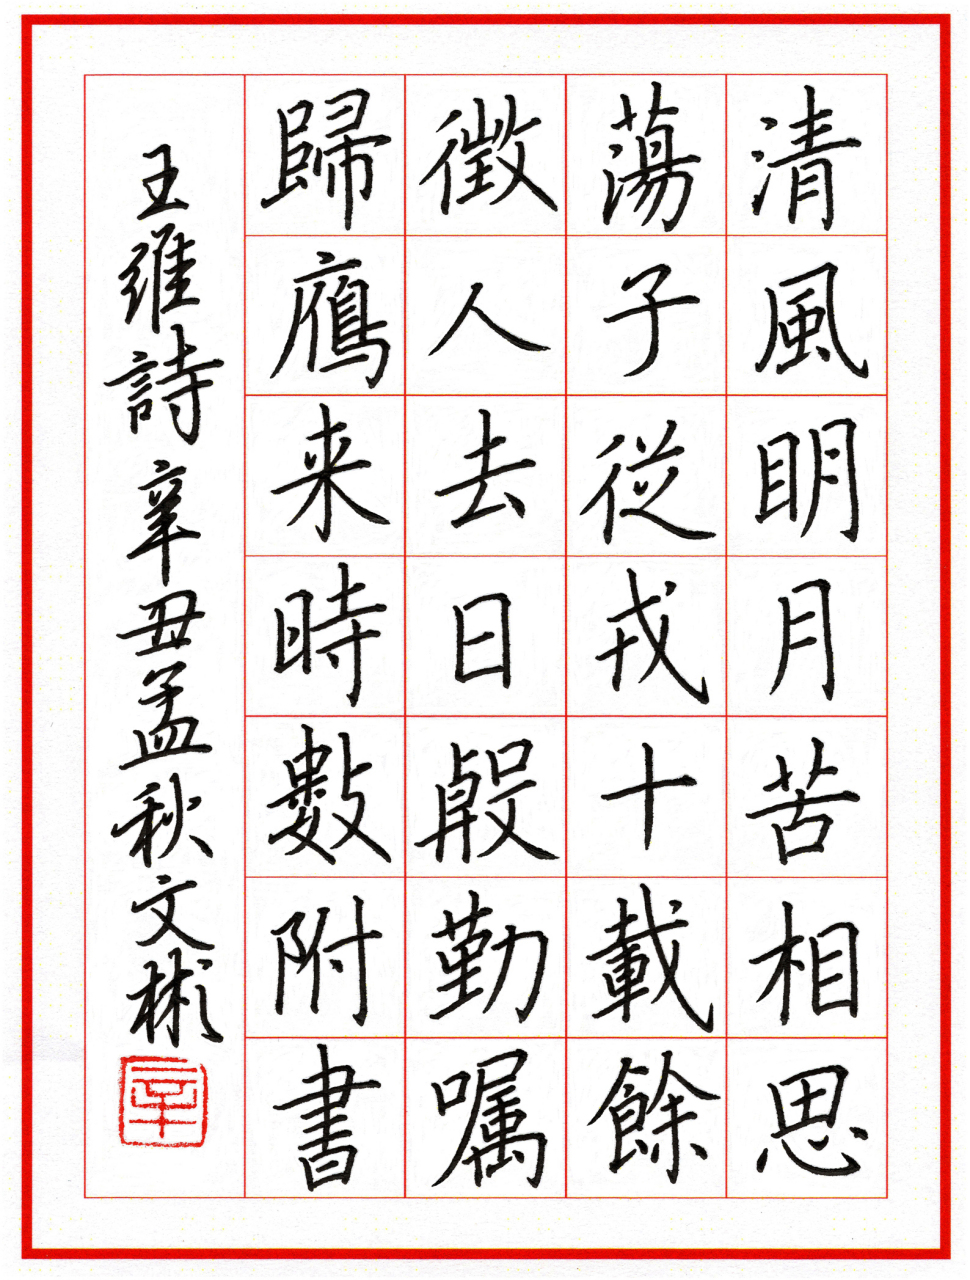 清風明月苦相思
蕩子從戎十載餘
徵人去日殷勤嘱
歸鴈来時數附書
王維詩 辛丑孟秋文彬